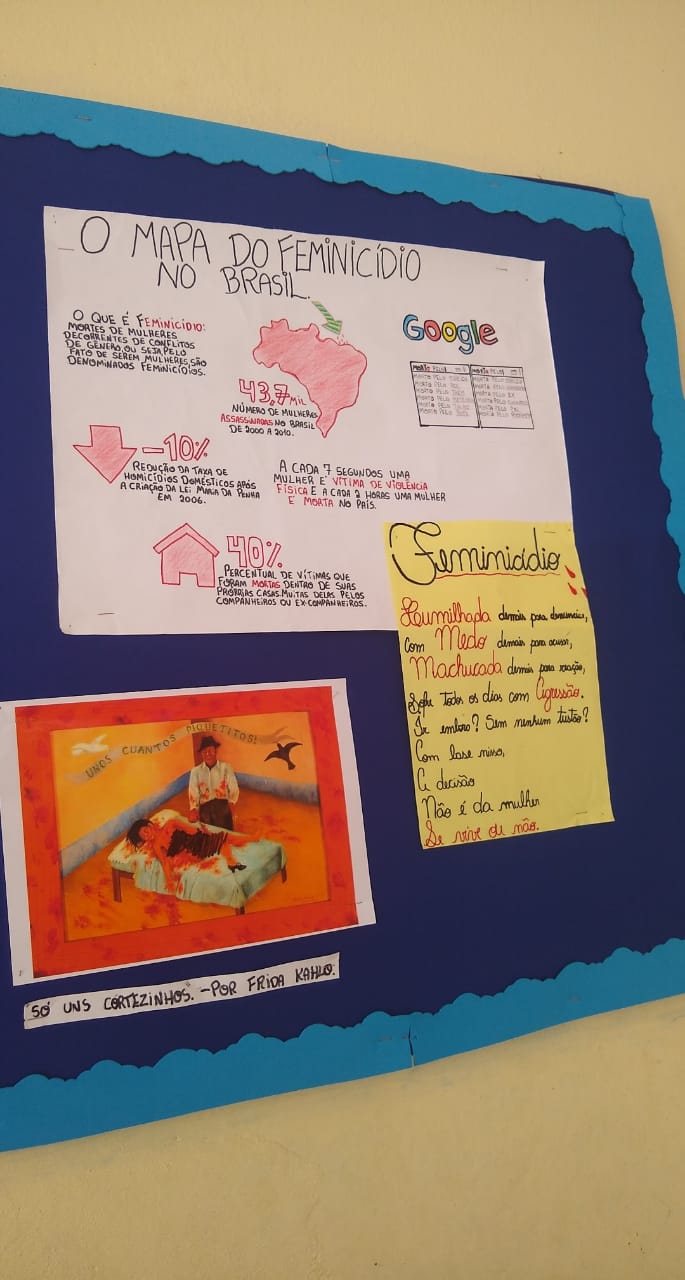 O MAPA DO FEMINICÍDIO
NO BRASIL.
O QUE É FEMINICÍDIO:
MORTES DE MULHERES
DECORRENTES DE CONFLITOS
DE GÊNERO, OU SEJA, PELO
FATO DE SEREM MULHERES, SÃO
DENOMINADOS FEMINICÍDIOS.
43,7 MIL
NÚMERO DE MULHERES
ASSASSINADAS NO BRASIL
DE 2000 A 2010.
Google
MORTA PELO
MORTA PELO
MORTA PELO
MORTA PELO
MORTA PELO
MORTA PELO
MORTA PELO
MORTA PELO
MORTA PELO EX
MORTA PELO
MORTA PELO
-10%
REDUÇÃO DA TAXA DE
HOMICÍDIOS DOMÉSTICOS APÓS
A CRIAÇÃO DA LEI MARIA DA PENHA
EM 2006.
A CADA 7 SEGUNDOS UMA
MULHER É VÍTIMA DE VIOLÊNCIA
FÍSICA E A CADA 2 HORAS UMA MULHER
É MORTA NO PAÍS.
40%
PERCENTUAL DE VÍTIMAS QUE
FORAM MORTAS DENTRO DE SUAS
PRÓPRIAS CASAS. MUITAS DELAS PELOS
COMPANHEIROS OU EX-COMPANHEIROS.
Feminicídio
Humilhada demais para denunciar,
Com Medo demais para acusar,
Machucada demais para reação,
Sofre todos os dias com Agressão.
Ir embora? Sem nenhum tustão?
Com base nisso,
A decisão
Não é da mulher
Se vive ou não.
UNOS CUANTOS PIQUETITOS!
"SÓ UNS CORTEZINHOS". -POR FRIDA KAHLO.